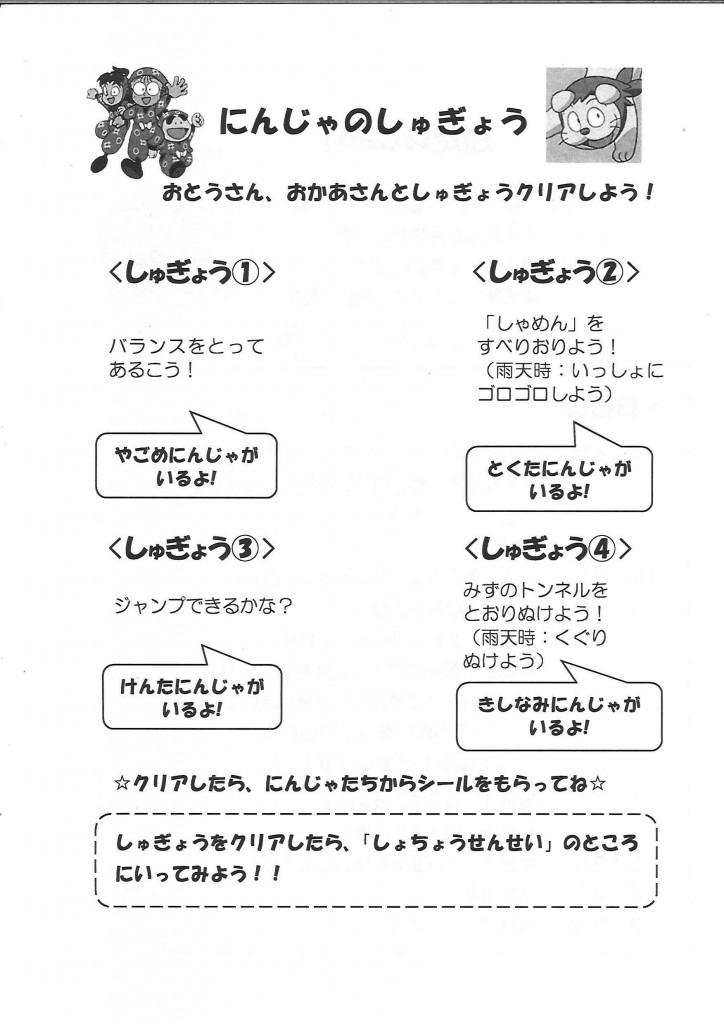 にんじゃのしゅぎょう
おとうさん、おかあさんとしゅぎょうクリアしよう！
＜しゅぎょう①＞
バランスをとって
あるこう！
やごめにんじゃが
いるよ!
＜しゅぎょう②＞
「しゃめん」を
すべりおりよう！
（雨天時：いっしょに
ゴロゴロしよう）
とくたにんじゃが
いるよ!
＜しゅぎょう③＞
ジャンプできるかな？
けんたにんじゃが
いるよ!
＜しゅぎょう④＞
みずのトンネルを
とおりぬけよう！
（雨天時：くぐり
ぬけよう）
きしなみにんじゃが
いるよ!
☆クリアしたら、にんじゃたちからシールをもらってね☆
しゅぎょうをクリアしたら、「しょちょうせんせい」のところ
にいってみよう！！